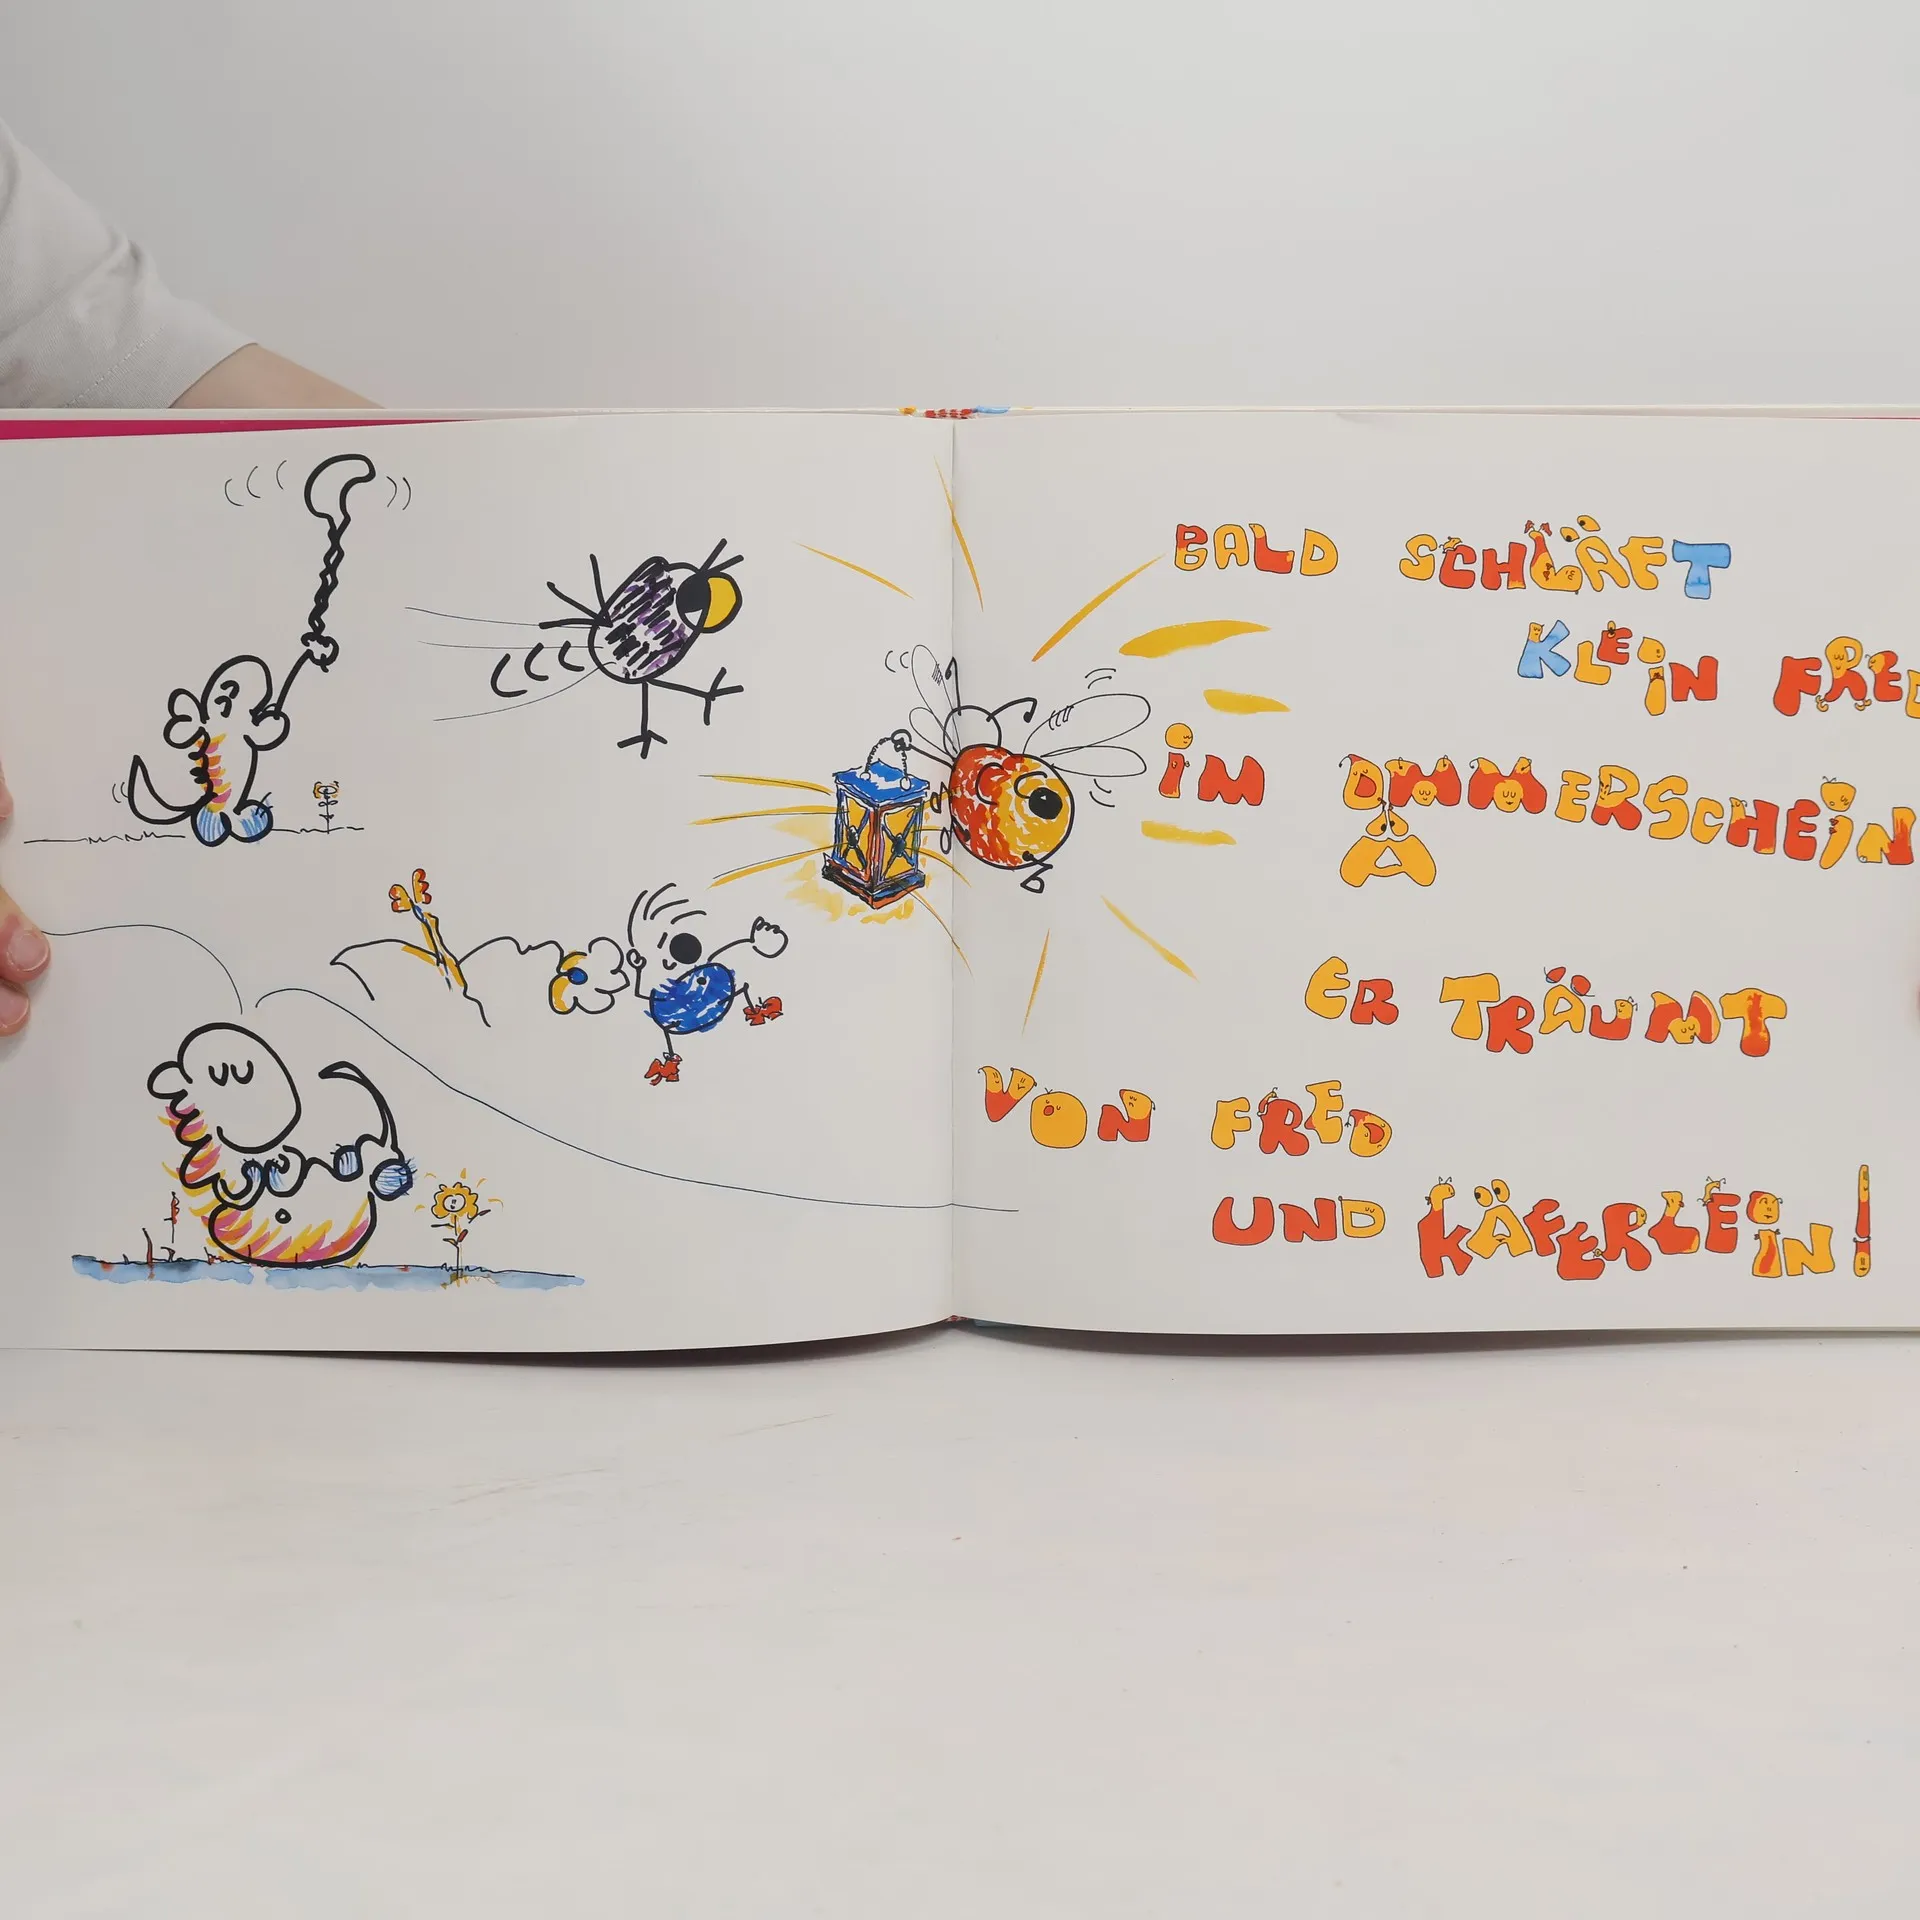 BALD SCHLÄFT
KLEIN FRED
IM DÄMMERSCHEIN
ER TRÄUMT
VON FRED
UND KÄFERLEIN!